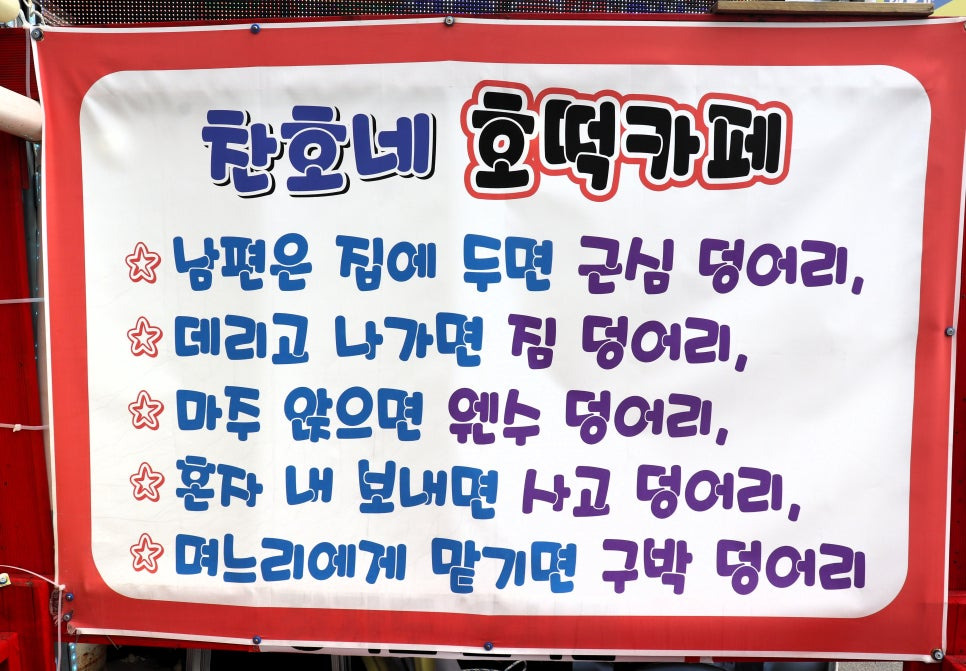 찬호네 호떡카페
남편은 집에 두면 근심 덩어리,
데리고 나가면 짐 덩어리,
마주 앉으면 웬수 덩어리,
혼자 내 보내면 사고 덩어리,
며느리에게 맡기면 구박 덩어리